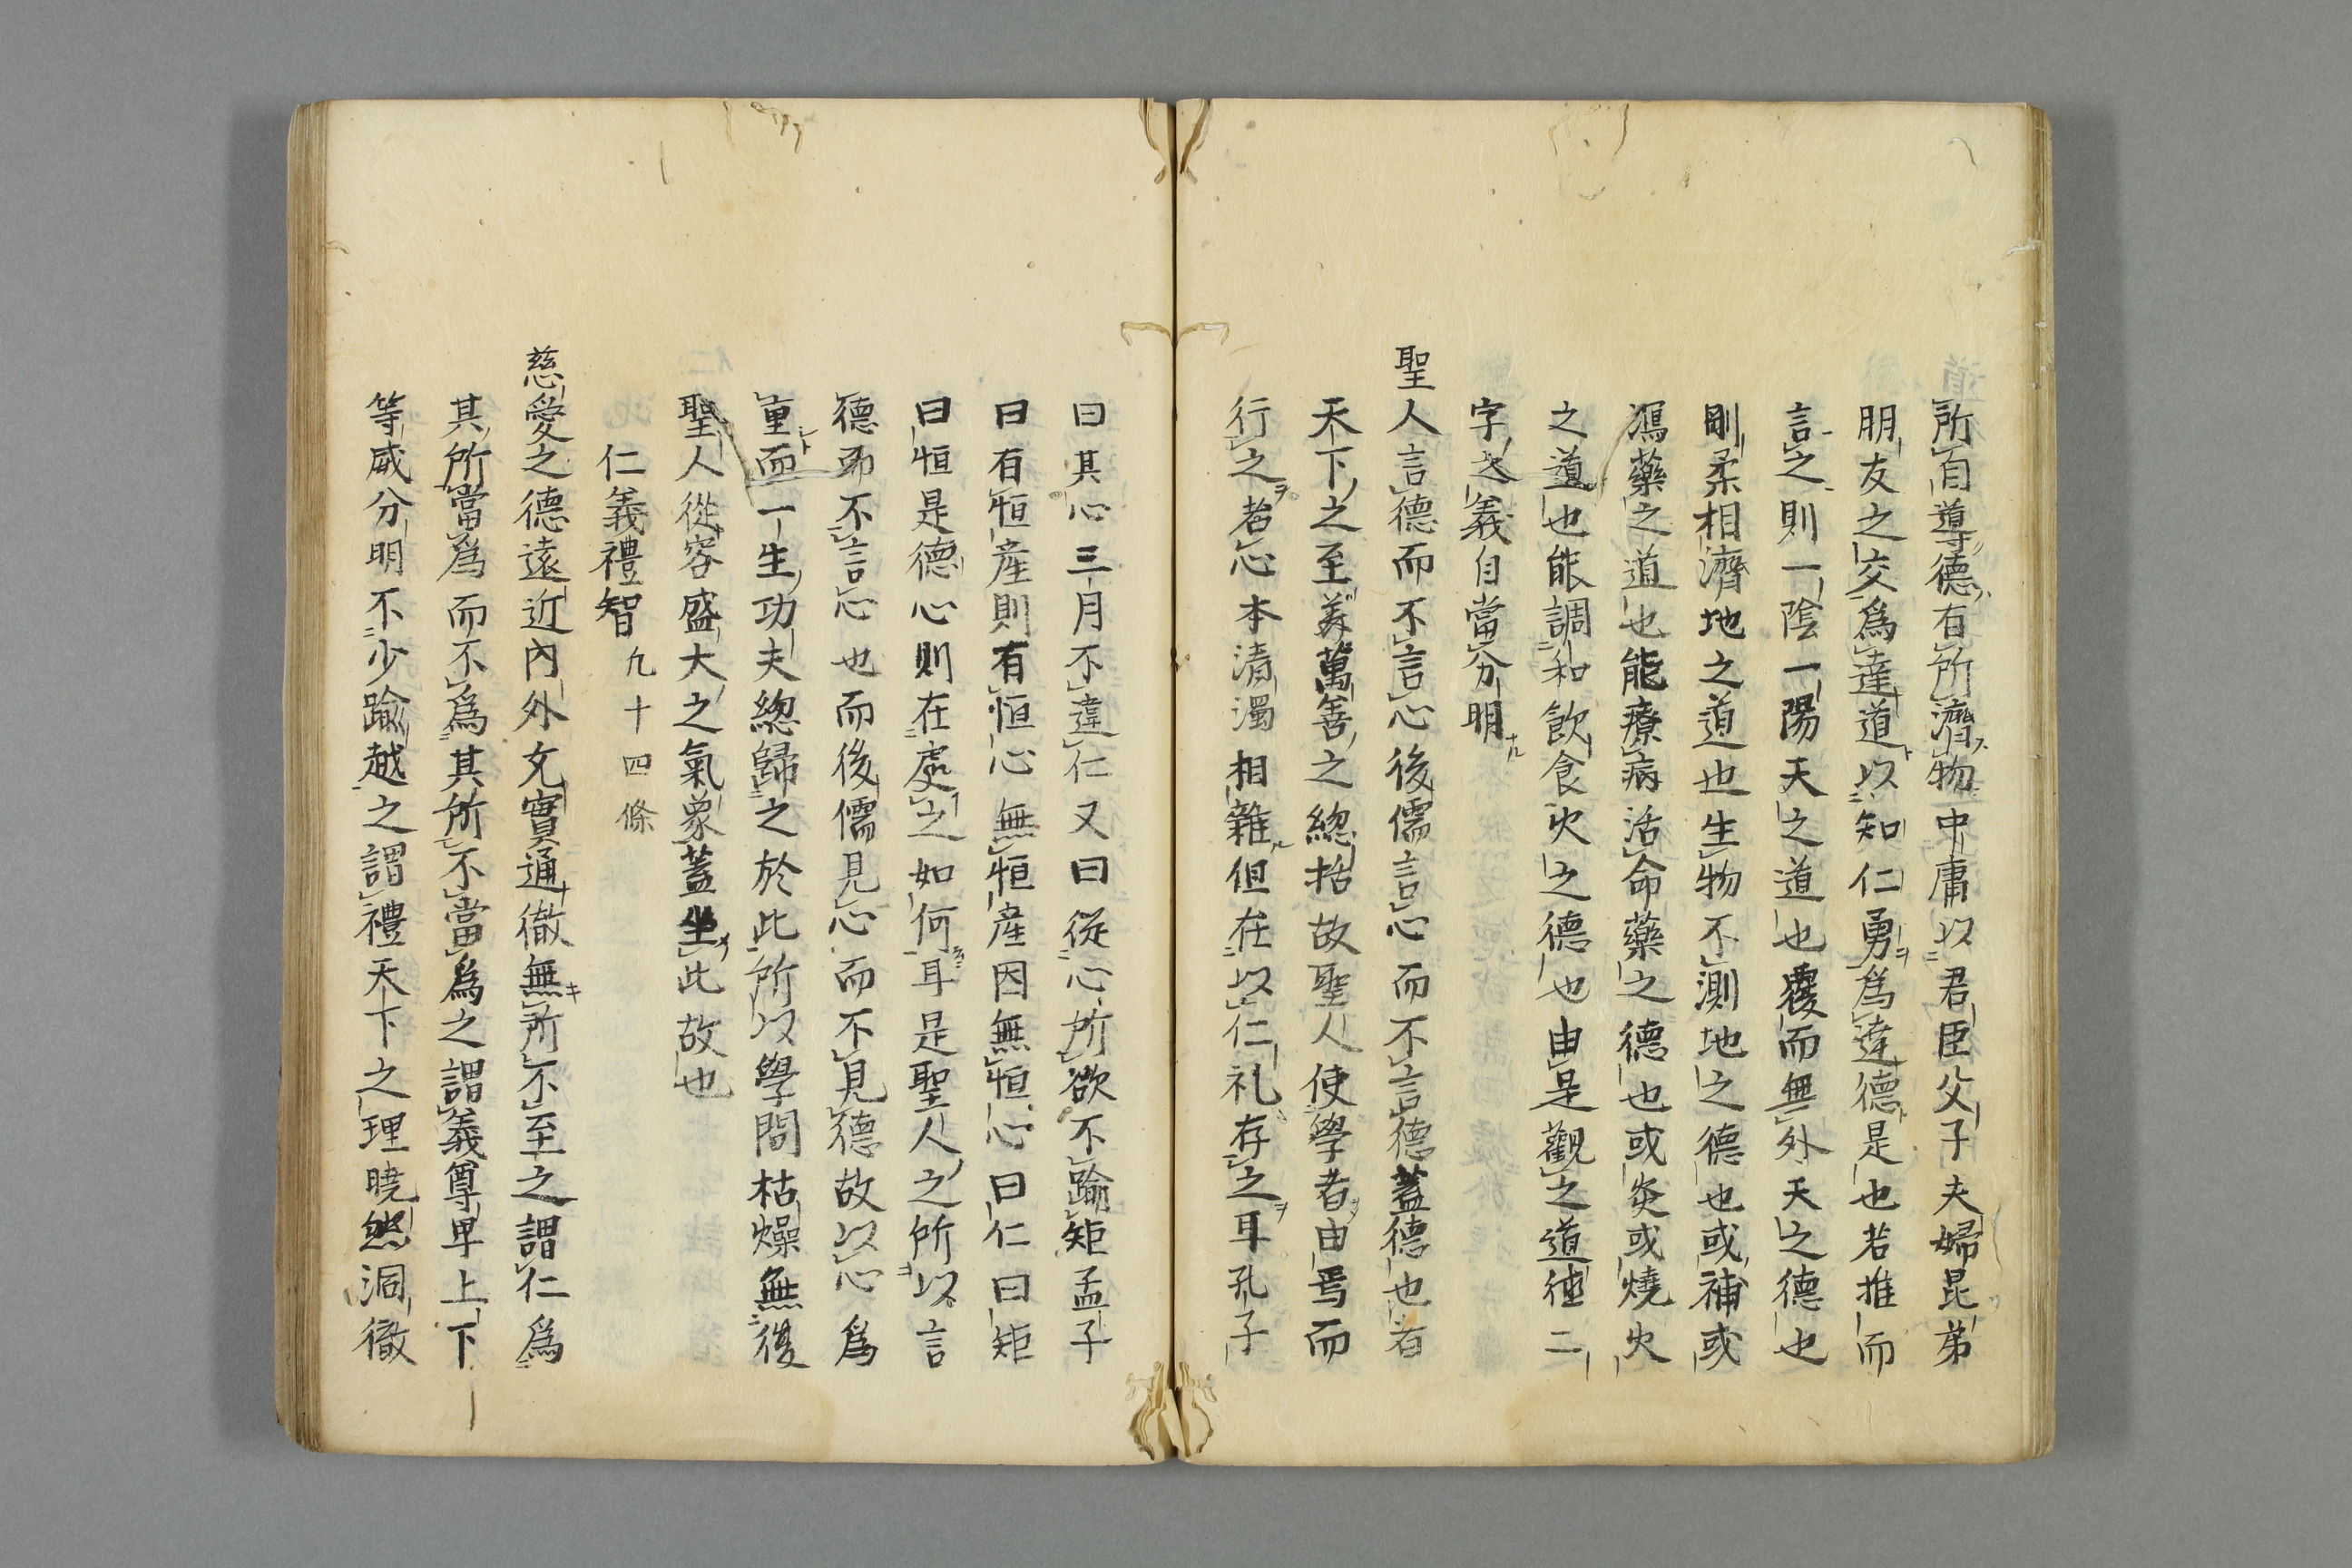 所自導德有所濟物中庸以君臣父子夫婦昆弟
朋友之交為達道以知仁勇為達德是也若推而
言之則一陰一陽天之道也覆而無外天之德也
剛柔相濟地之道也生物不測地之德也或補或
瀉藥之道也能療病活命藥之德也或炙或燒火
之道也能調和飲食火之德也由是觀之道徳二
字之義自當分明
聖人言德而不言心後儒言心而不言德蓋德也者
天下之至美萬善之總括故聖人使學者由焉而
行之若心本清濁相雜但在以仁礼存之耳孔子
曰其心三月不違仁又曰從心所欲不踰矩孟子
曰有恒產則有恒心無恒產因無恒心曰仁曰矩
曰恒是德心則在處之如何耳是聖人之所以言
德而不言心也而後儒見心而不見德故以心為
重而一生功夫總歸之於此所以學問枯燥無復
聖人從容盛大之氣象蓋坐此故也
仁義禮智 九十四條
慈愛之德遠近內外充實通徹無所不至之謂仁為
其所當為而不為其所不當為之謂義尊卑上下
等威分明不少踰越之謂禮天下之理曉然洞徹